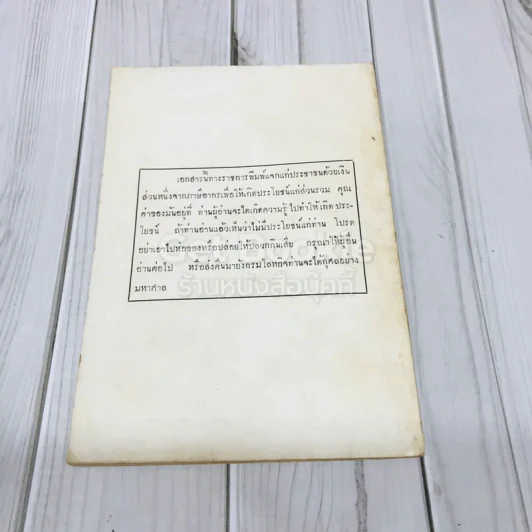 เอกสารนี้ทางราชการพิมพ์แจกแก่ประชาชนด้วยเงิน
ส่วนหนึ่งจากภาษีอากรเพื่อให้เกิดประโยชน์แก่ส่วนรวม คุณ
ค่าของมันอยู่ที่ ท่านผู้อ่านจะได้เกิดความรู้ ไปทำให้เกิด ประ-
โยชน์ ถ้าท่านอ่านแล้วเห็นว่าไม่มีประโยชน์แก่ท่าน โปรด
อย่าเอาไปห่อของหรือปล่อยให้ปลวกกินเสีย กรุณาให้ผู้อื่น
อ่านต่อไป หรือส่งคืนมายังกรมโลหกิจท่านจะได้กุศลอย่าง
มหาศาล
ร้านหนังสือบุ๊คกี้